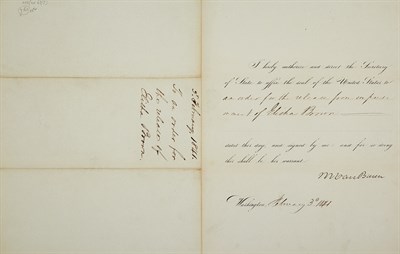 3 February, 1841.
To an order for
the release of
Elisha Brown.
I hereby authorize and direct the Secretary
of State to affix the seal of the United States to
an order for the release from imprison-
ment of Elisha Brown
dated this day, and signed by me: and for so doing
this shall be his warrant.
M Van Buren
Washington, February 3d 1841